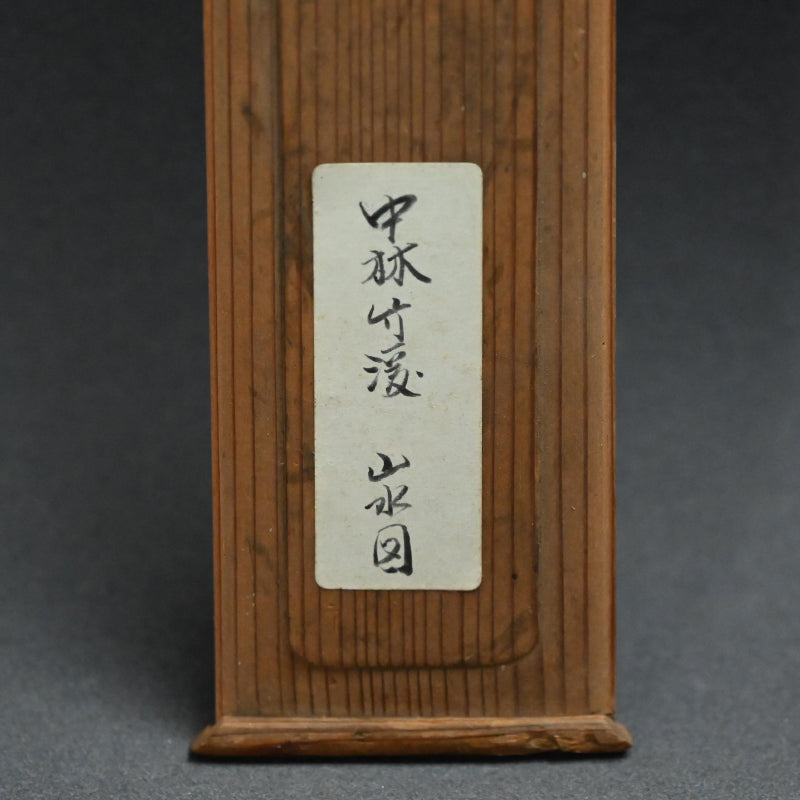 中林竹渓 山水図